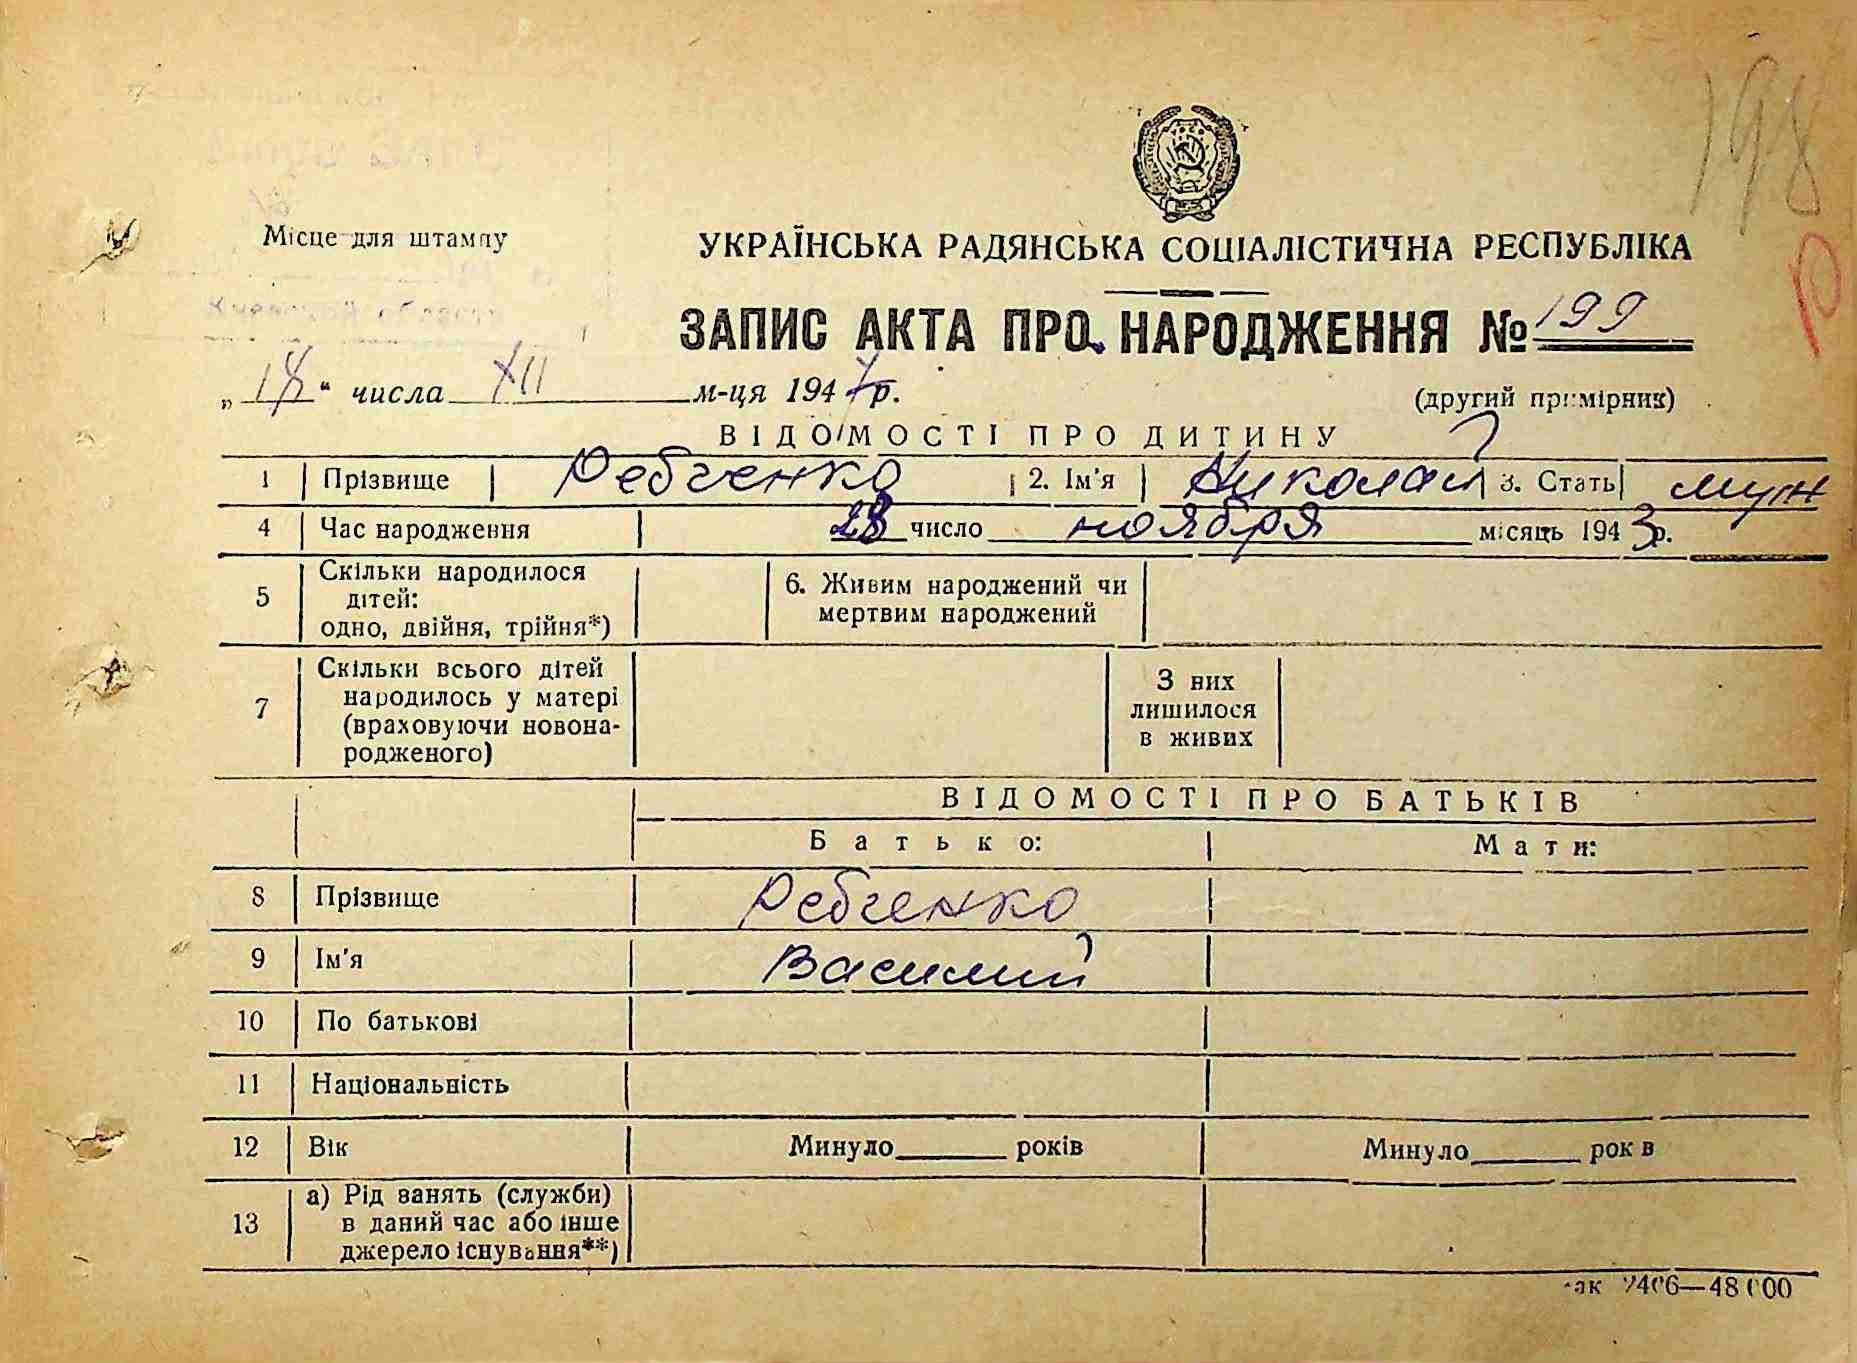 198
Р
Місце для штампу
УКРАЇНСЬКА РАДЯНСЬКА СОЦІАЛІСТИЧНА РЕСПУБЛІКА
ЗАПИС АКТА ПРО НАРОДЖЕННЯ № 199
„18“ числа XII м-ця 1947 р.
(другий примірник)
ВІДОМОСТІ ПРО ДИТИНУ
1 Прізвище Ребченко 2. Ім'я Николай 3. Стать муж
4 Час народження 28 число ноября місяць 1943 р.
5 Скільки народилося дітей: одно, двійня, трійня*) 6. Живим народжений чи мертвим народжений
7 Скільки всього дітей народилось у матері (враховуючи новонародженого) З них лишилося в живих
ВІДОМОСТІ ПРО БАТЬКІВ
Батько: Мати:
8 Прізвище Ребченко
9 Ім'я Василий
10 По батькові
11 Національність
12 Вік Минуло років Минуло рок в
13 а) Рід занять (служби) в даний час або інше джерело існування**)